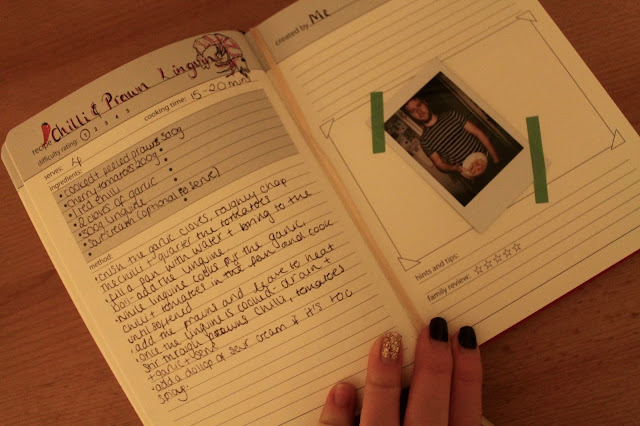 recipe Chilli & Prawn Linguin
difficulty rating 1 2 3 4 5
cooking time: 15-20 mins
serves: 4
ingredients:
• cooked + peeled prawns 300g
• cherry tomatoes 200g
• 1 red chilli
• 2 cloves of garlic
• 300g linguine
• sour cream (optional to serve)
method:
• crush the garlic cloves, roughly chop
the chilli, + quarter the tomatoes
• fill a pan with water + bring to the
boil - add the linguine.
• while linguine cooks fry the garlic,
chilli + tomatoes in the pan and cook
until softened
• add the prawns and leave to heat
• once the linguine is cooked - drain +
stir through prawns, chilli, tomatoes
+ garlic + serve
• add a dollop of sour cream if it's too
spicy.
created by Me
hints and tips:
family review: ☆☆☆☆☆